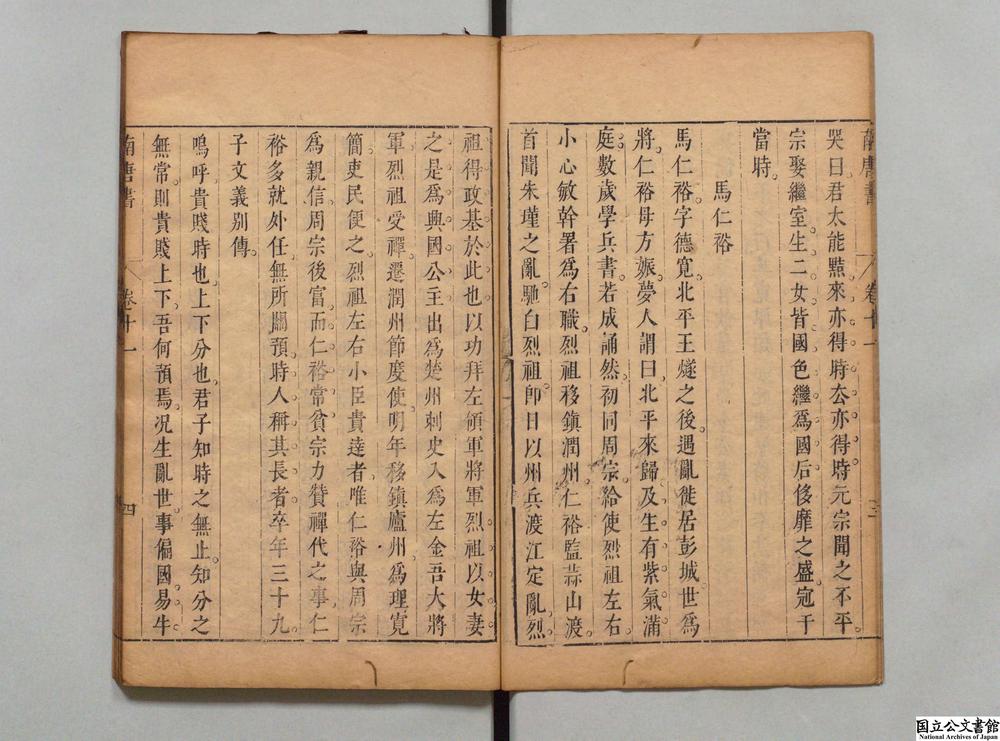 哭曰君太能黠來亦得時去亦得時元宗聞之不平
宗娶繼室生二女皆國色繼為國后侈靡之盛冠于
當時
馬仁裕
馬仁裕字德寬北平王燧之後遇亂徙居彭城世為
將仁裕母方娠夢人謂曰北平來歸及生有紫氣滿
庭數歲學兵書若成誦然初同周宗給使烈祖左右
小心敏幹署為右職烈祖移鎮潤州仁裕監蒜山渡
首聞朱瑾之亂馳白烈祖卽日以州兵渡江定亂烈
祖得政基於此也以功拜左領軍將軍烈祖以女妻
之是為興國公主出為楚州刺史入為左金吾大將
軍烈祖受禪遷潤州節度使明年移鎮廬州為理寬
簡吏民便之烈祖左右小臣貴達者唯仁裕與周宗
為親信周宗後富而仁裕常貧宗力贊禪代之事仁
裕多就外任無所關預時人稱其長者卒年三十九
子文義別傳
嗚呼貴賤時也上下分也君子知時之無止知分之
無常則貴賤上下吾何預焉况生亂世事偏國易牛
南唐書
卷十一
三
南唐書
卷十一
四
国立公文書館
National Archives of Japan